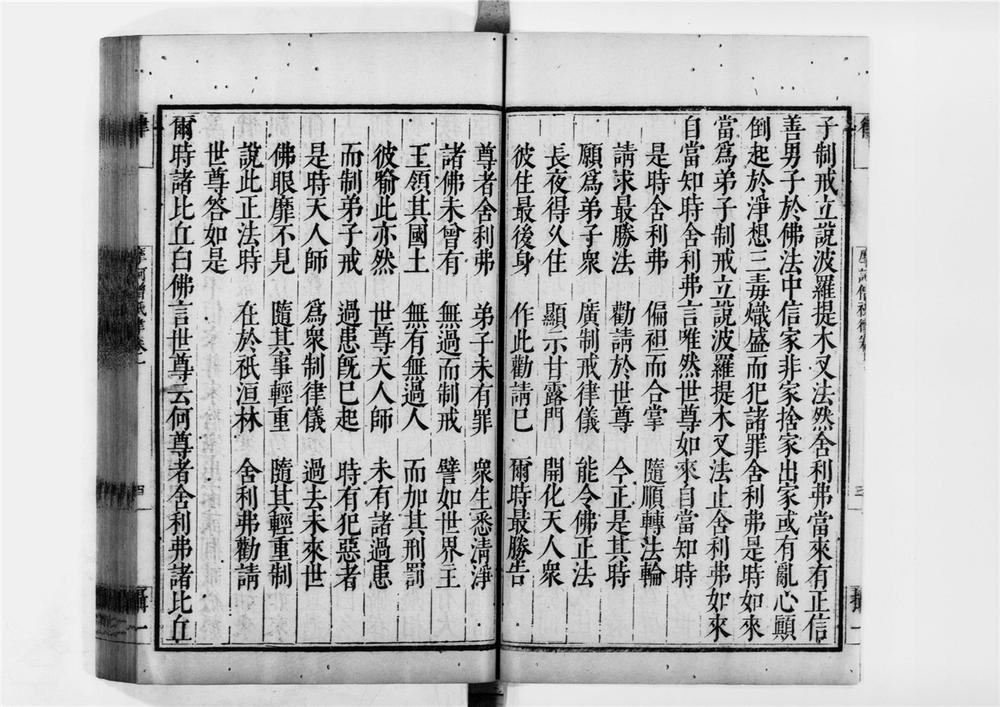 子制戒立說波羅提木叉法然舍利弗當來有正信
善男子於佛法中信家非家捨家出家或有亂心顚
倒起於淨想三毒熾盛而犯諸罪舍利弗是時如來
當爲弟子制戒立說波羅提木叉法止舍利弗如來
自當知時舍利弗言唯然世尊如來自當知時
是時舍利弗 偏袒而合掌 隨順轉法輪
請求最勝法 勸請於世尊 今正是其時
願爲弟子衆 廣制戒律儀 能令佛正法
長夜得久住 顯示甘露門 開化天人衆
彼住最後身 作此勸請已 爾時最勝告
尊者舍利弗 弟子未有罪 衆生悉清淨
諸佛未曾有 無過而制戒 譬如世界王
王領其國土 無有無過人 而加其刑罰
彼喻此亦然 世尊天人師 未有諸過患
而制弟子戒 過患旣已起 時有犯惡者
是時天人師 爲衆制律儀 過去未來世
佛眼靡不見 隨其事輕重 隨其輕重制
說此正法時 在於祇洹林 舍利弗勸請
世尊答如是
爾時諸比丘白佛言世尊云何尊者舍利弗諸比丘
律
摩訶僧祇律卷一
四